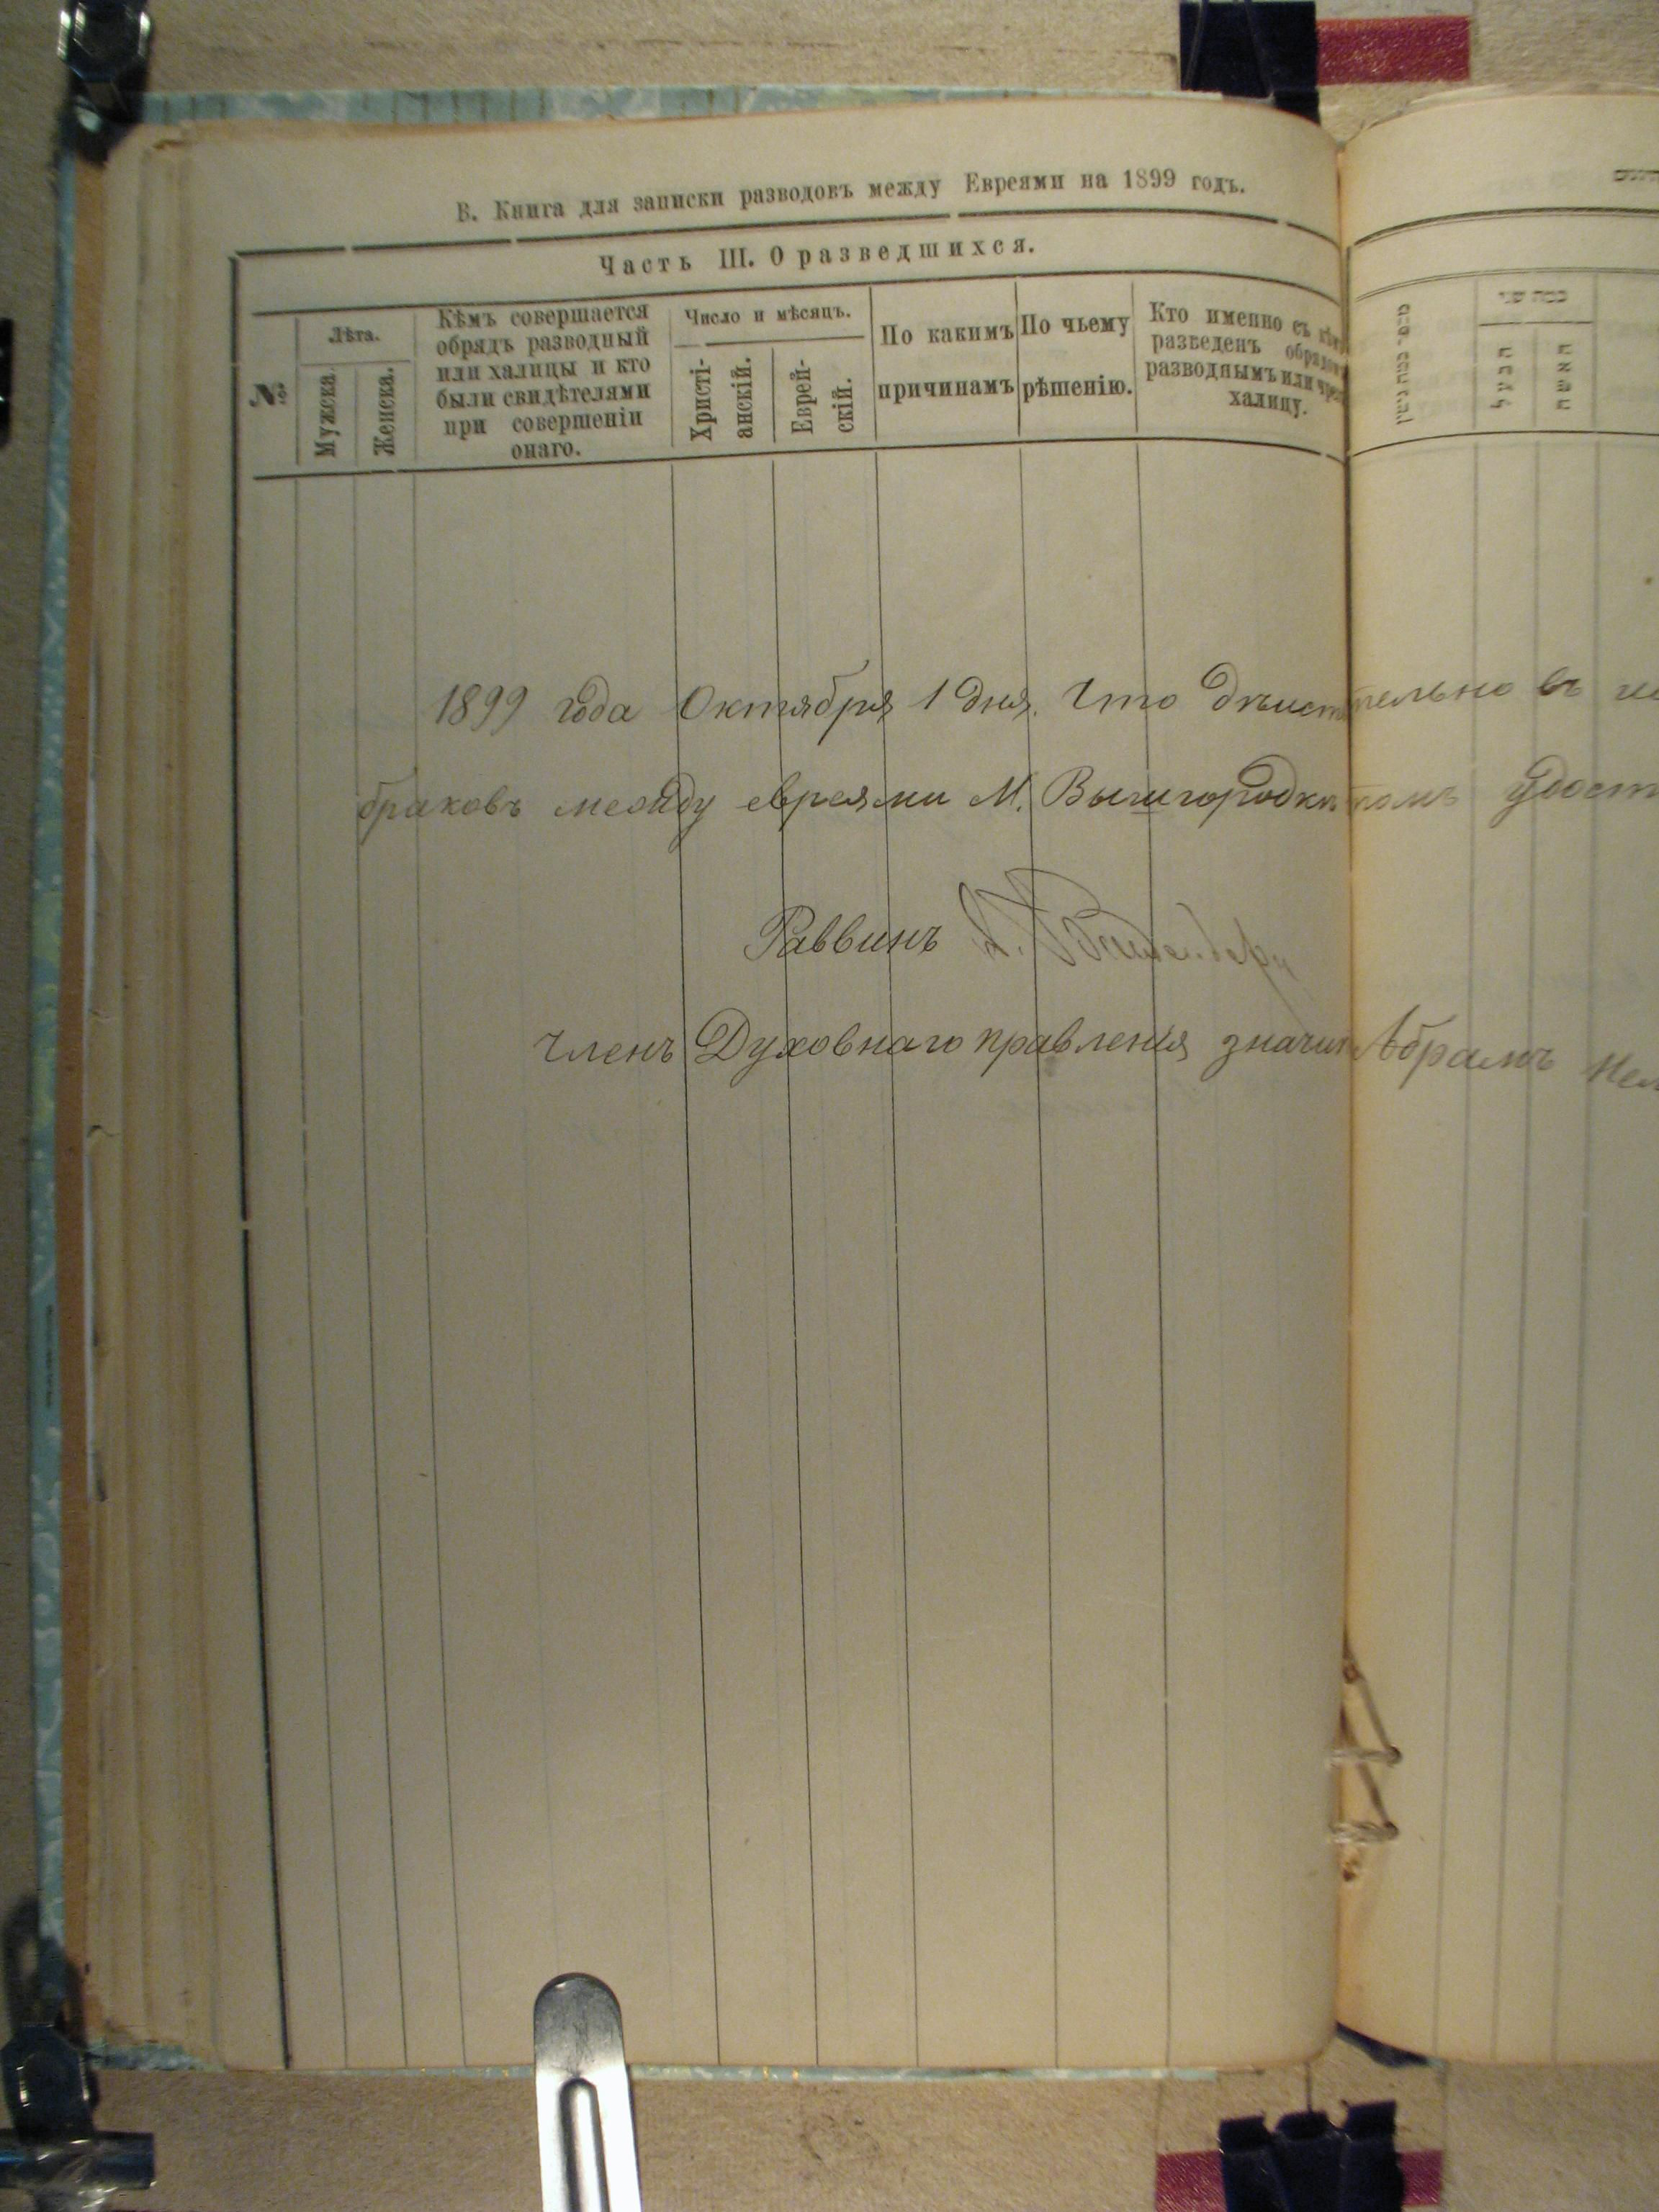 В. Книга для записки разводовъ между Евреями на 1899 годъ.
Часть III. О разведшихся.
№
Лѣта.
Мужска.
Женска.
Кѣмъ совершается
обрядъ разводный
или халицы и кто
были свидѣтелями
при совершеніи
онаго.
Число и мѣсяцъ.
Христі-
анскій.
Еврей-
скій.
По какимъ
причинамъ
По чьему
рѣшенію.
Кто именно съ кѣмъ
разведенъ обрядомъ
разводнымъ или чрезъ
халицу.
כמה שני
הבעל
האשה
1899 года Октября 1 дня. Что дѣйст тельно въ
браковъ между евреями М. Вышгородк томъ удост
Раввинъ
Членъ Духовнаго правленія значит Абрамъ